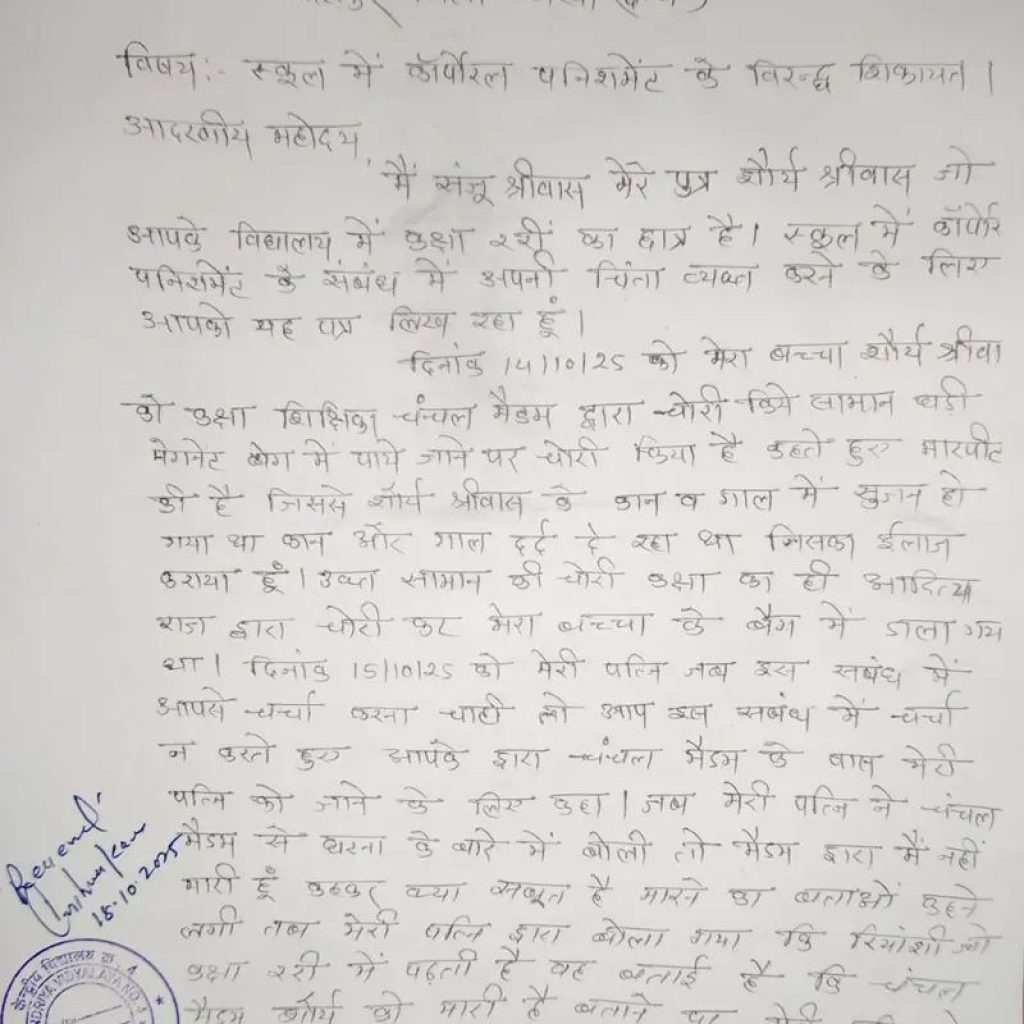 विषय:- स्कूल में कॉर्पोरल पनिशमेंट के विरुद्ध शिकायत।
आदरणीय महोदय,
मैं संजू श्रीवास मेरे पुत्र शौर्य श्रीवास जो
आपके विद्यालय में कक्षा 2री का छात्र है। स्कूल में कॉर्पोर
पनिशमेंट के संबंध में अपनी चिंता व्यक्त करने के लिए
आपको यह पत्र लिख रहा हूँ।
दिनांक 14/10/25 को मेरा बच्चा शौर्य श्रीवा
को कक्षा शिक्षिका चंचल मैडम द्वारा चोरी किये सामान घड़ी
मेगनेट बेग में पाये जाने पर चोरी किया है कहते हुए मारपीट
की है जिससे शौर्य श्रीवास के कान व गाल में सुजन हो
गया था कान और गाल दर्द दे रहा था जिसका ईलाज
कराया हूँ। उक्त सामान की चोरी कक्षा का ही आदित्य
राज द्वारा चोरी कर मेरा बच्चा के बैग में डाला गय
था। दिनांक 15/10/25 को मेरी पत्नि जब इस सबंध में
आपसे चर्चा करना चाही तो आप इस सबंध में चर्चा
न करते हुए आपके द्वारा चंचल मैडम के पास मेरी
पत्नि को जाने के लिए कहा। जब मेरी पत्नि ने चंचल
मैडम से घटना के बारे में बोली तो मैडम द्वारा मैं नहीं
मारी हूँ कहकर क्या सबूत है मारने का बताओं कहने
लगी तब मेरी पत्नि द्वारा बोला गया कि रियांशी जो
कक्षा 2री में पढ़ती है वह बताई है कि चंचल
मैडम शौर्य को मारी है बताने पर मेरी
Received
18.10.2025
केन्द्रीय विद्यालय क्र. 4
KENDRIYA VIDYALAYA NO. 4